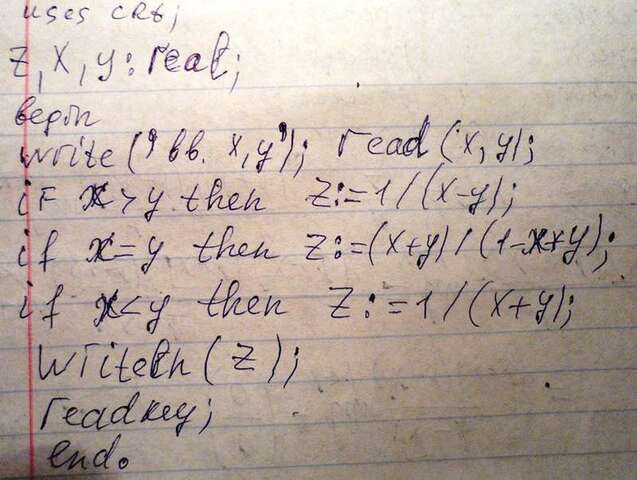 uses crt;
z, x, y: real;
begin
write ('вв. x,y'); read (x, y);
if x > y then z:=1/(x-y);
if x = y then z:=(x+y)/(1-x*y);
if x < y then z:=1/(x+y);
writeln (z);
readkey;
end.